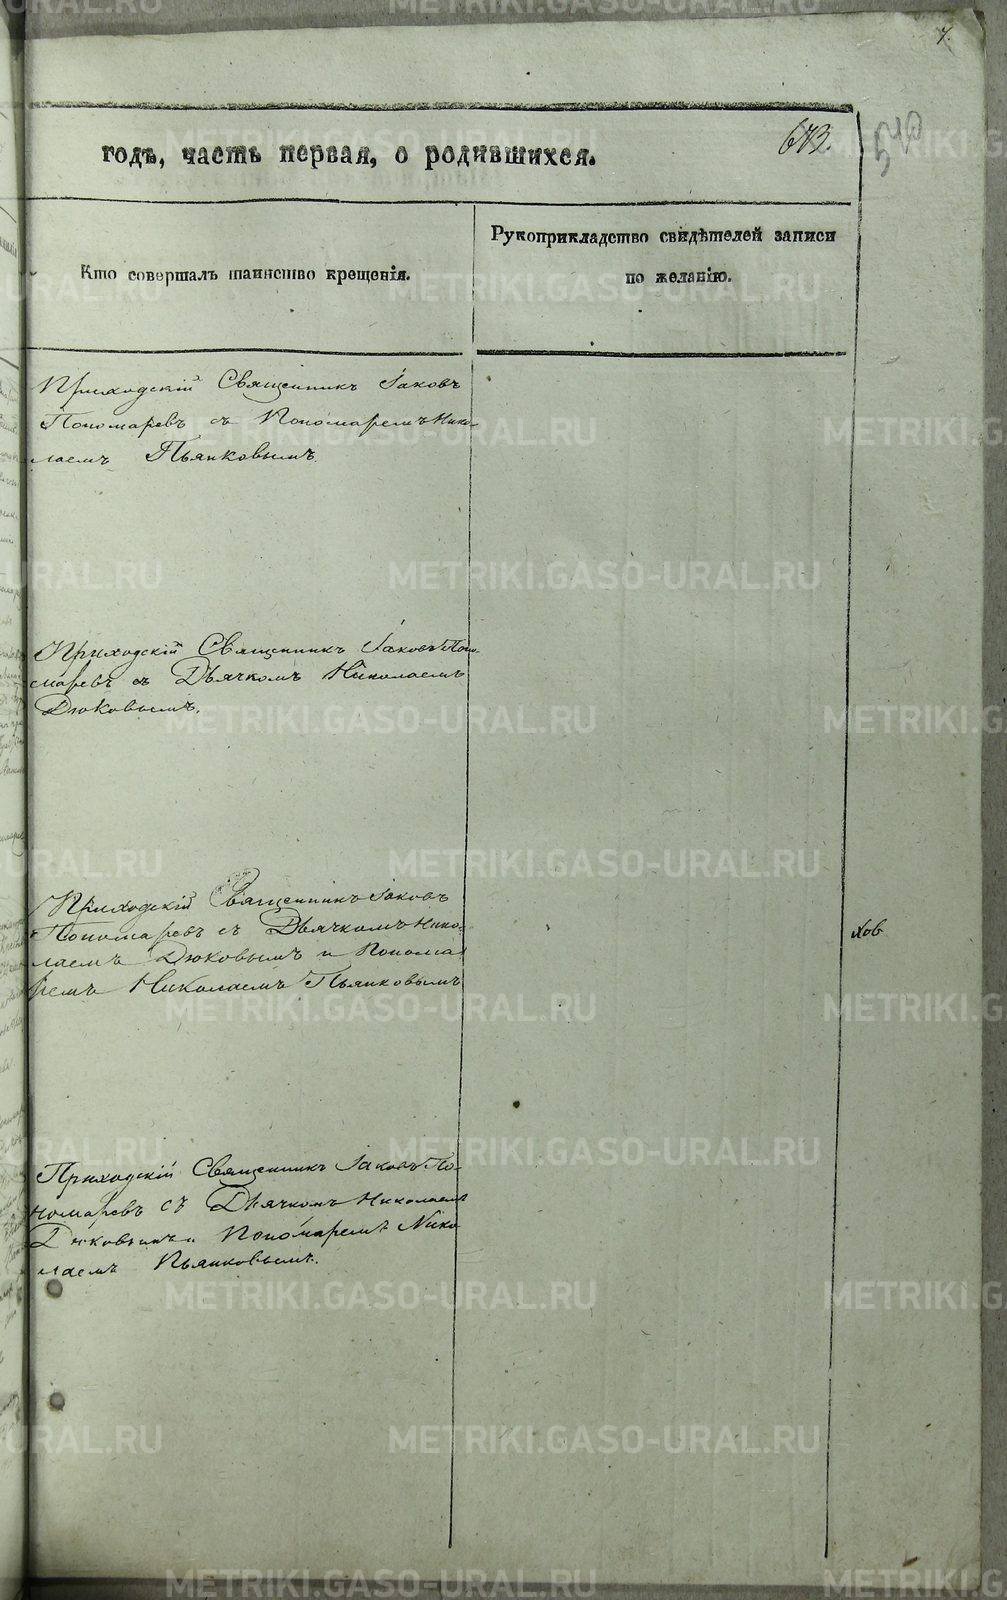 7.
673.
540
годъ, часть первая, о родившихся.
Кто совершалъ таинство крещенія.
Рукоприкладство свидѣтелей записи
по желанію.
Приходскій Священникъ Іаковъ
Пономаревъ съ Пономаремъ Нико-
лаемъ Пьянковымъ.
Приходскій Священникъ Іаковъ Поно-
маревъ съ Дьячкомъ Николаемъ
Дюковымъ.
Приходскій Священникъ Іаковъ
Пономаревъ съ Дьячкомъ Нико-
лаемъ Дюковымъ и Понома-
ремъ Николаемъ Пьянковымъ
хов
Приходскій Священникъ Іаковъ По-
номаревъ съ Дьячкомъ Николаемъ
Дюковымъ и Пономаремъ Нико
лаемъ Пьянковымъ.
METRIKI.GASO-URAL.RU